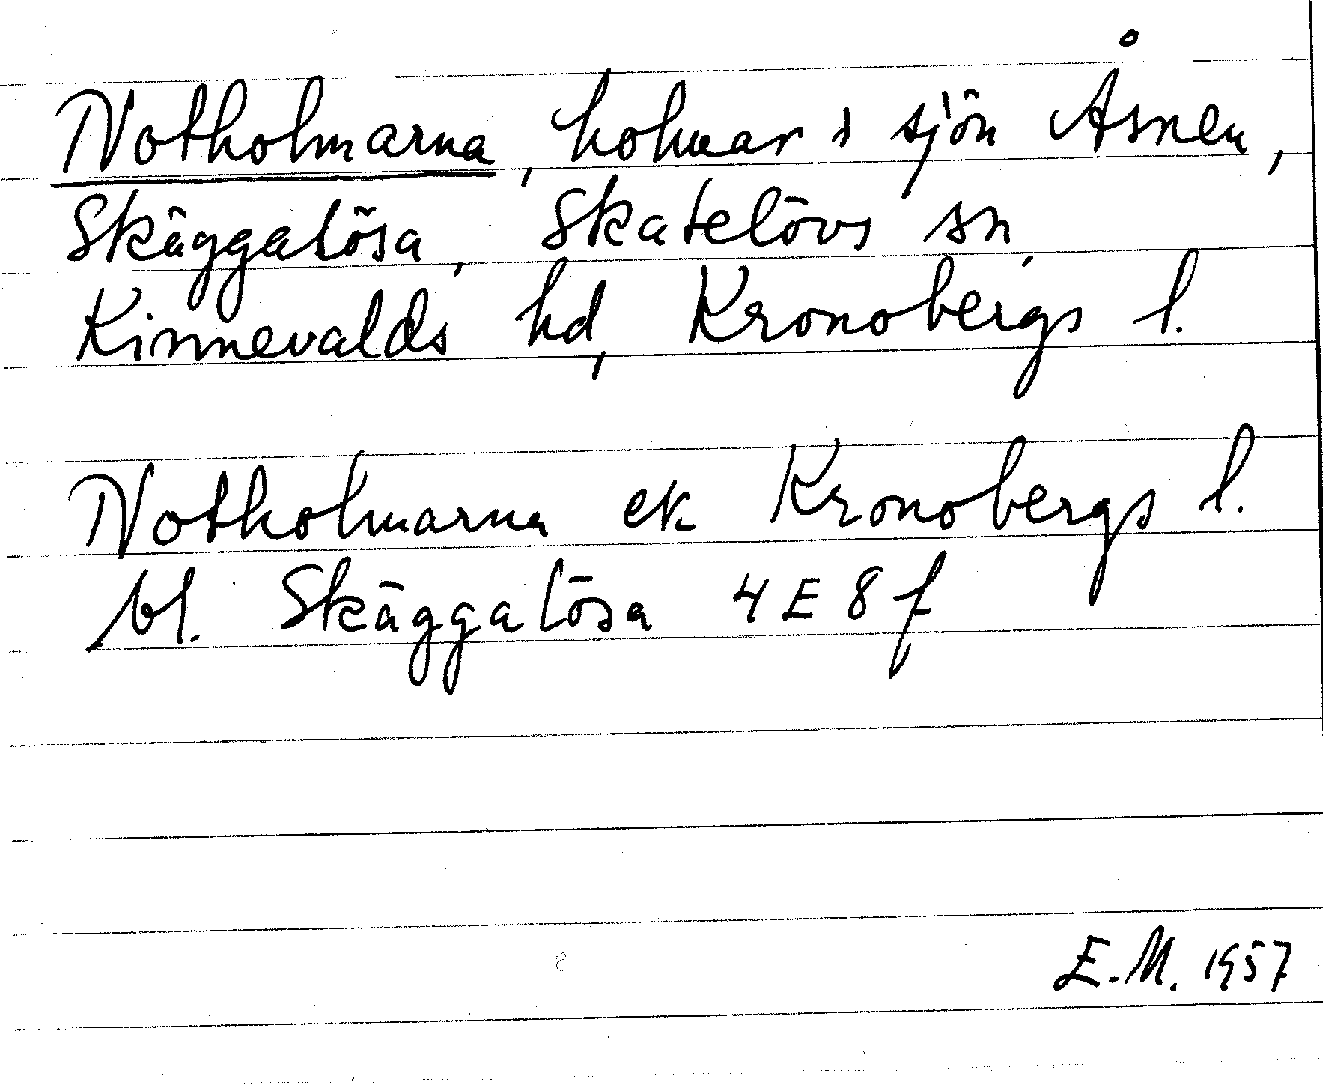 Notholmarna, holmar i sjön Åsnen,
Skäggalösa, Skatelövs sn,
Kinnevalds hd, Kronobergs l.
Notholmarna ek Kronobergs l.
bl. Skäggalösa 4 E 8 f
E.M. 1957